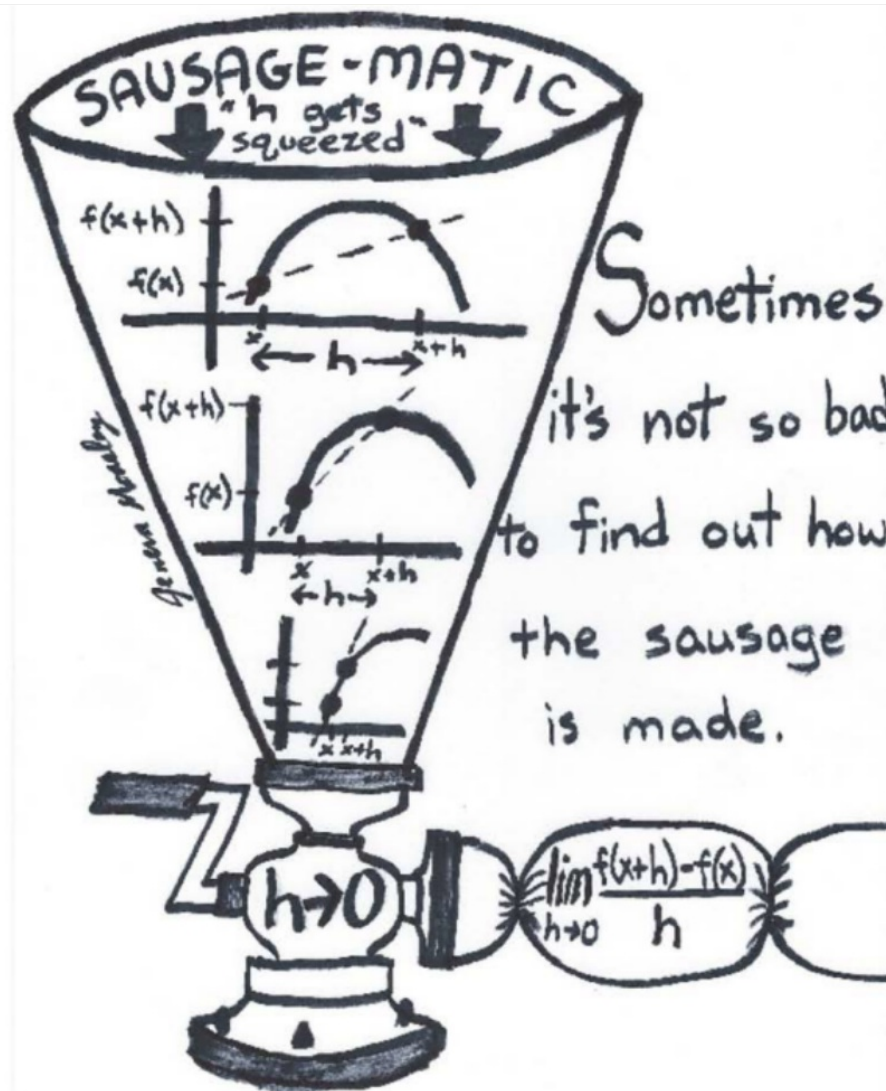 SAUSAGE-MATIC
"h gets
squeezed"
f(x+h)
f(x)
x
x+h
h
f(x+h)
f(x)
x
x+h
h
x x+h
h→0
Sometimes
it's not so bad
to find out how
the sausage
is made.
lim f(x+h)-f(x)
h→0 h